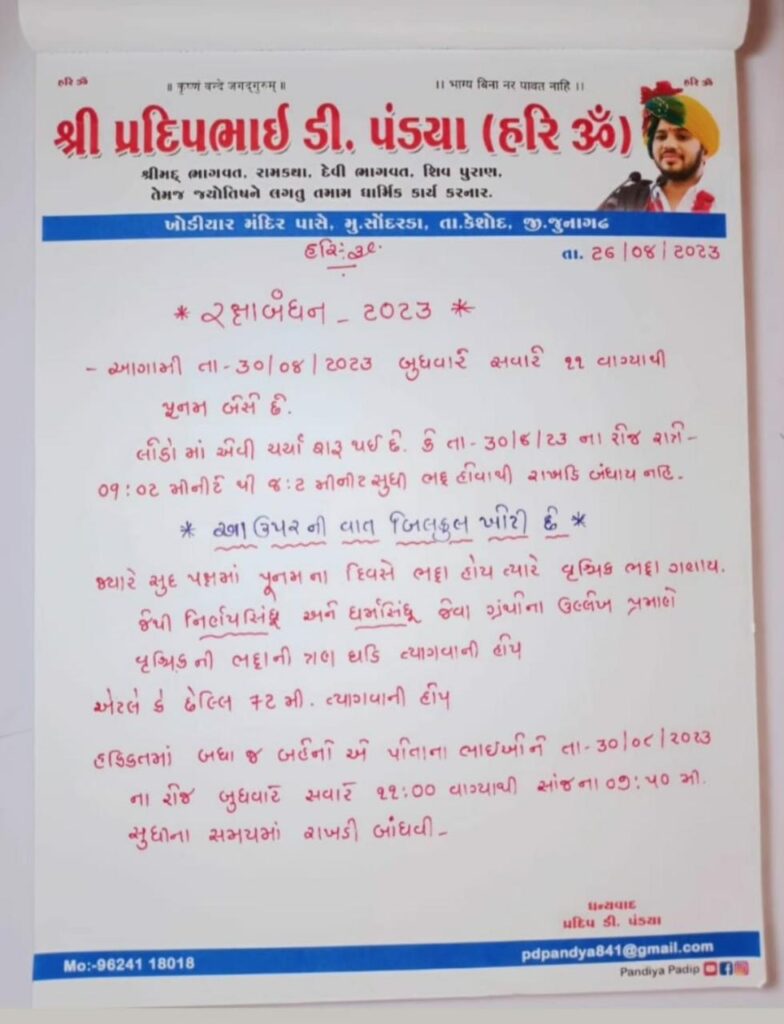 હરિ ૐ
॥ कृष्णं वन्दे जगद्गुरुम् ॥
।। ભાગ્ય બિના નર પાવત નાહિ ।।
હરિ ૐ
શ્રી પ્રદિપભાઈ ડી. પંડ્યા (હરિ ૐ)
શ્રીમદ્ ભાગવત, રામકથા, દેવી ભાગવત, શિવ પુરાણ,
તેમજ જ્યોતિષને લગતુ તમામ ધાર્મિક કાર્ય કરનાર.
ખોડીયાર મંદિર પાસે, મુ.સોંદરડા, તા.કેશોદ, જી.જુનાગઢ
હરિ:ૐ
તા. ૨૬/૦૮/૨૦૨૩
* રક્ષાબંધન - ૨૦૨૩ *
- આગામી તા - ૩૦/૦૮/૨૦૨૩ બુધવારે સવારે ૧૧ વાગ્યાથી
પૂનમ બેસે છે.
લોકો માં એવી ચર્ચા શરૂ થઈ છે. કે તા - ૩૦/૮/૨૩ ના રોજ રાત્રે -
૦૯:૦૨ મીનીટ થી ૪:૨ મીનીટ સુધી ભદ્રા હોવાથી રાખડિ બંધાય નહિ.
* આ ઉપર ની વાત બિલકુલ ખોટી છે *
જ્યારે સુદ પક્ષમાં પૂનમ ના દિવસે ભદ્રા હોય ત્યારે વૃશ્ચિક ભદ્રા ગણાય.
જેથી નિર્ણયસિંધુ અને ધર્મસિંધૂ જેવા ગ્રંથોના ઉલ્લેખ પ્રમાણે
વૃશ્ચિક ની ભદ્રાની ત્રણ ઘડિ ત્યાગવાની હોય
એટલે કે છેલ્લિ ૭૨ મી. ત્યાગવાની હોય
હકિકતમાં બધા જ બહેનો એ પોતાના ભાઈઓને તા - ૩૦/૦૮/૨૦૨૩
ના રોજ બુધવારે સવારે ૧૧:૦૦ વાગ્યાથી સાંજના ૦૭:૫૦ મી.
સુધીના સમયમાં રાખડી બાંધવી -
ધન્યવાદ
પ્રદિપ ડી. પંડ્યા
Mo:-96241 18018
pdpandya841@gmail.com
Pandiya Padip